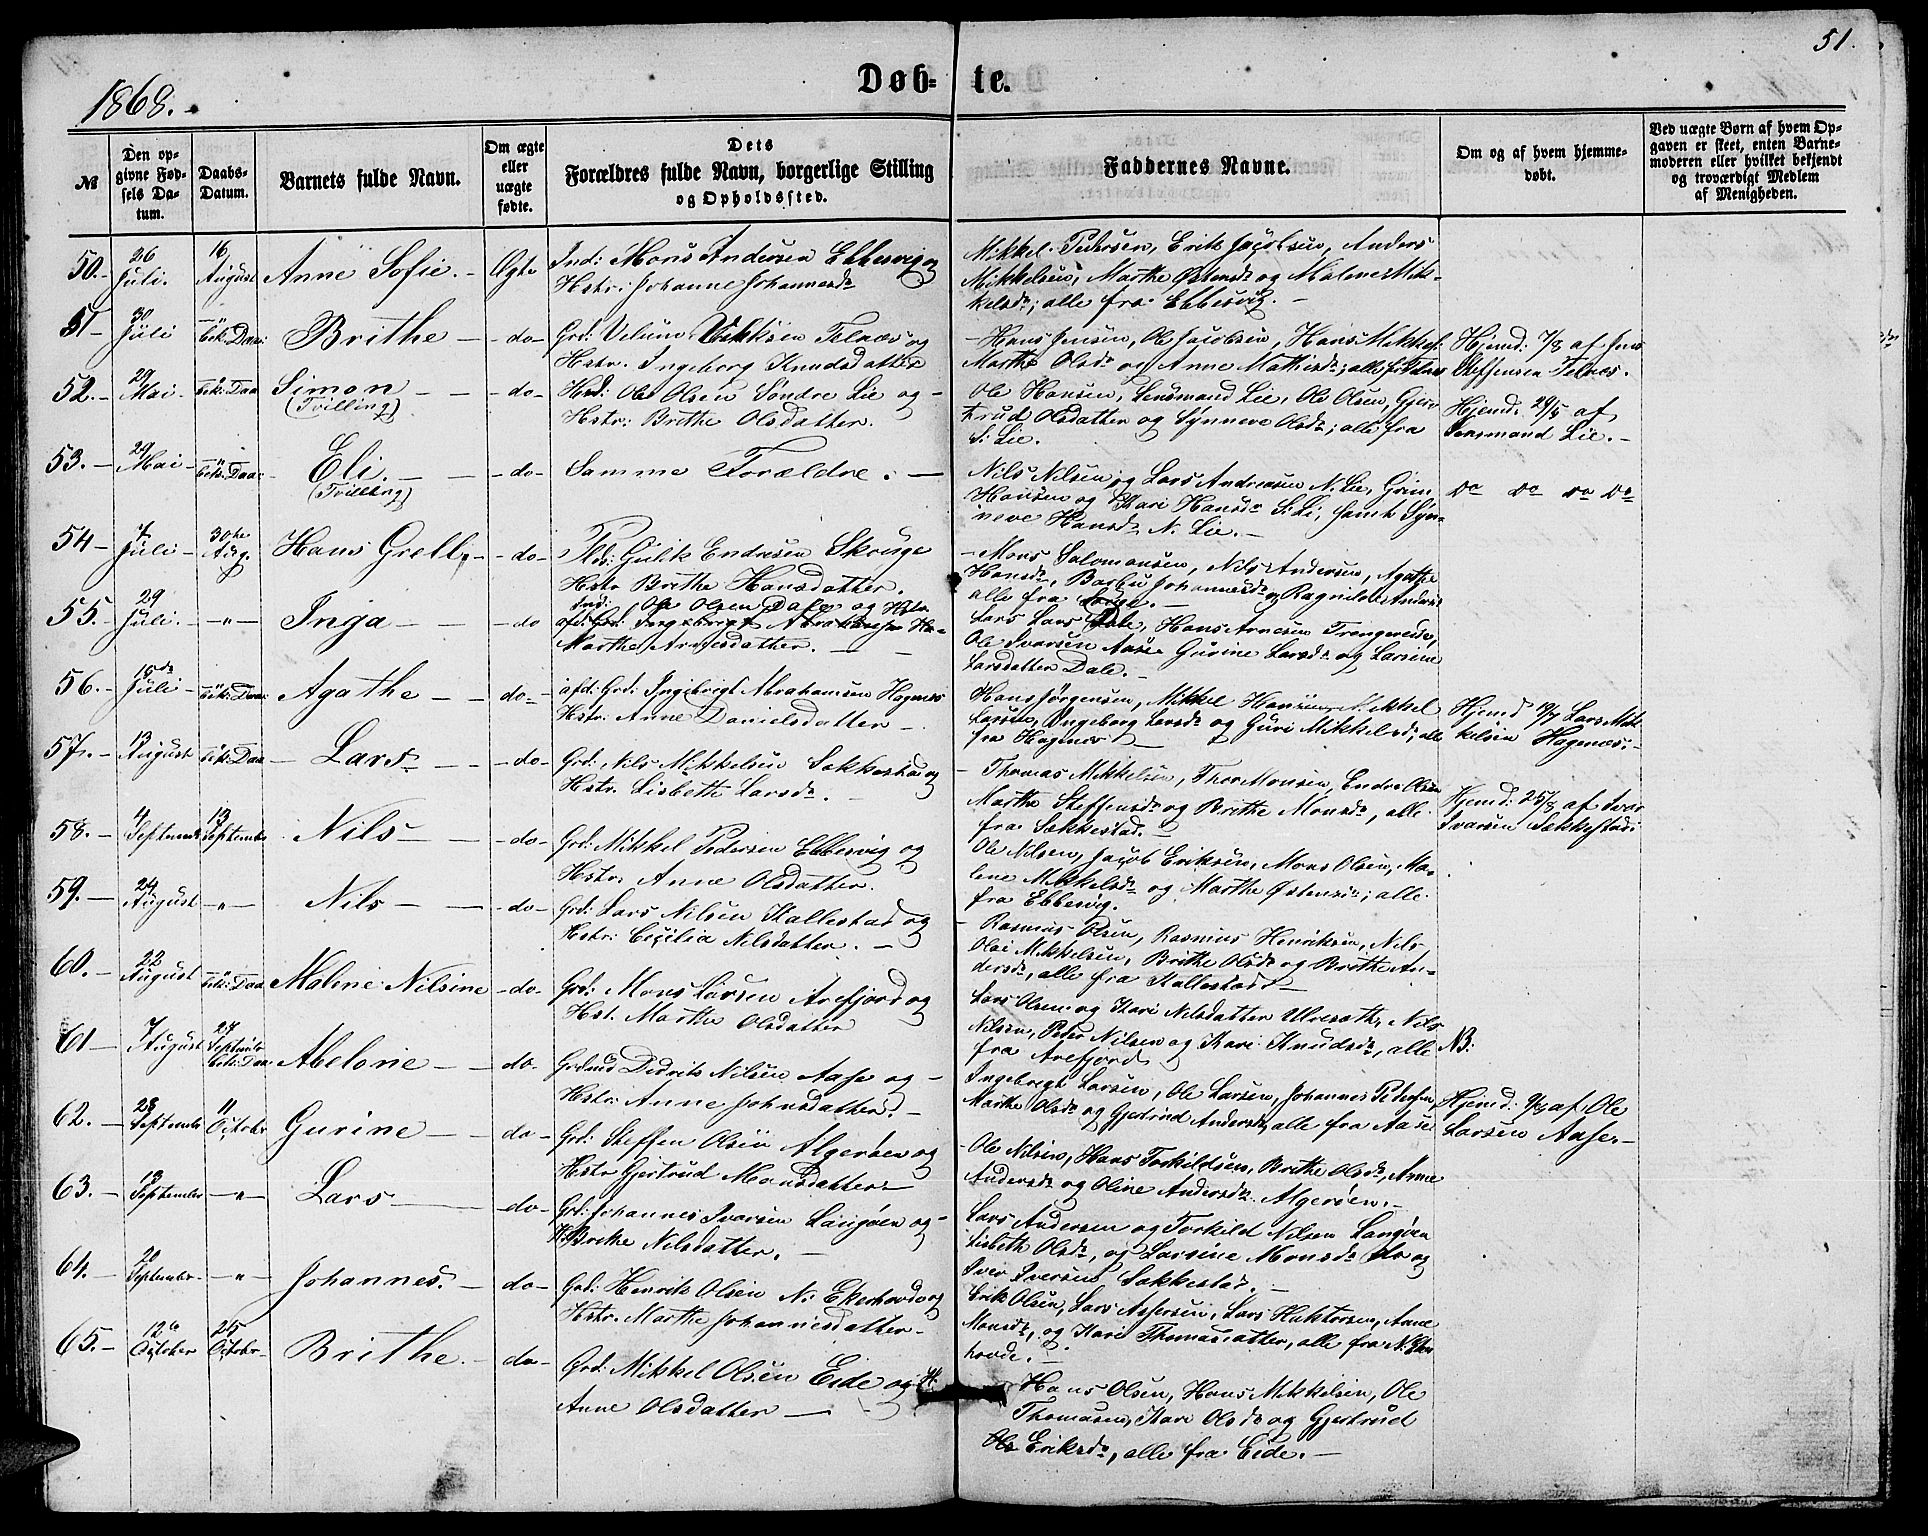 51.
1868.
Døb- te.
№
Den opgivne Fødsels Datum.
Daabs-Datum.
Barnets fulde Navn.
Om ægte eller uægte fødte.
Dets Forældres fulde Navn, borgerlige Stilling og Opholdssted.
Faddernes Navne.
Om og af hvem hjemmedøbt.
Ved uægte Børn af hvem Opgaven er skeet, enten Barnemoderen eller hvilket bekjendt og troværdigt Medlem af Menigheden.
50. 26 Juli. 16 August Anne Sofie. Ægte Ind: Mons Andersen Ebbesvig og
Hstr: Johanne Johannesdr
Mikkel Pedersen, Erik Jacobsen, Anders
Mikkelsen, Marthe Østensdr og Malene Mik-
kelsdr; alle fra Ebbesvig.
51 30 Juli bek: Daa: Brithe do Grd: Telnæs og
Hstr. Ingeborg Knudsdatter
Hans Jensen, Ole Jacobsen, Hans Mikkels.
Marthe Olsdr og Anne Mathisdr; alle f: Telnæs
Hjemd: 7/8 af Jens
Steffensen Telnæs.
52. 29 Mai bek: Daa Simon (Tvilling) do Hsd: Ole Olsen Søndre Lie og
Hstr: Brithe Olsdatter.
Ole Hansen, Lensmand Lie, Ole Olsen, Gjer-
trud Olsdatter og Synneve Olsdr; alle fra
S: Lie.
Hjemd: 29/5 af
Lensmand Lie.
53. 29 Mai bek: Daa: Eli. (Tvilling) do Samme Forældre.
Nils Nilsen og Lars Andreasen N. Lie, Grim
Hansen og Kari Hansdr S. Li; samt Syn-
neve Hansdr N. Lie.
Do Do Do Do
54 7 Juli 30te Aug. Hans Grell, do Pld: Gulik Endresen Skouge
Hstr Brithe Hansdatter.
Mons Salomonsen, Nils Andersen, Agathe
Hansdr, Barbu Johannesdr og Ragnilde Andersdr
alle fra
55. 29 Juli Inga do Ind: Ole Olsen Dale og Hstr
afd: Grd: Ingebrigt Abrahamsen Ha-
Marthe Arnesdatter.
Lars Lars Dale, Hans Arnesen Trengereide,
Ole Ivarsen Aase Gurine Larsdr og Larsine
Larsdatter Dale.
56. 15de Juli bek: Daa: Agathe do afd: Grd: Ingebrigt Abrahamsen Hagenæs
Hstr: Anne Danielsdatter
Hans Jørgensen, Mikkel Hansen, Mikkel
Larsen, Ingeborg Larsdr og Guri Mikkelsdr; alle
fra Hagenæs
Hjemd 19/7 Lars Mik-
kelsen Hagenæs.
57. 13 August bek: Daa Lars do Grd: Nils Mikkelsen Sekkestad og
Hstr. Lisbethe Larsdr.
Thomas Mikkelsen, Thor Monsen, Endre Olsen
Marthe Steffensdr og Brithe Monsdr, alle
fra Sekkestad.
Hjemd: 25/8 af Ivar
Ivarsen Sekkestad:
58. 4 September 13 September Nils do Grd: Mikkel Pedersen Ebbesvig og
Hstr. Anne Olsdatter.
Ole Nilsen, Jacob Eriksen, Mons Olsen, Ma-
lene Mikkelsdr og Marthe Østensdr; alle
fra Ebbesvig.
59. 24 August Nils do Grd: Lars Nilsen Kallestad og
Hstr: Cecilia Nilsdatter.
Rasmus Olsen, Rasmus Henriksen, Nils
Mikkelsen, Brithe Olsdr og Brithe An-
dersdr, alle fra Kallestad
60. 22 August bek: Daa Maline Nilsine do Grd: Mons Larsen Arefjord og
Hst. Marthe Olsdatter
Lars Olsen og Kari Nilsdatter Ulvesæth, Nils
Nilsen, Peder Nilsen og Kari Knudsdr, alle
fra Arefjord
NB:
61 7 August 27 Septembr bek: Daa Abelone do Grdmd Didrik Nilsen Aase og
Hstr: Anne Johnsdatter.
Ingebrigt Larsen, Ole Larsen, Johannes Pedersen,
Marthe Olsdr og Gjertrud Andersdr, alle fra Aase
Hjemd: 9/8 af Ole
Larsen Aase.
62. 23 September 11 October Gurine do Grd: Steffen Olsen Algerøen og
Hstr Gjertrud Monsdatter
Ole Nilsen, Hans Torkildsen, Brithe Olsdr, Anne
Andersdr og Oline Andersdr Algerøen.
63. 13 September Lars do Grd: Johannes Ivarsen Langøen og
H: Brithe Nilsdatter.
Lars Andersen og Torkild Nilsen Langøen
Lisbeth Olsdr, og Larsine Monsdr do og
Iver Iversen Sekkestad.
64. 20 September Johannes. do Grd: Henrik Olsen N. Ekerhovd og
Hstr. Marthe Johannesdatter
Erik Olsen, Lars Assersen, Lars Halstensen, Anne
Monsdr, og Kari Thomasdatter, alle fra N. Eker-
hovde.
65. 12te October 25 October Brithe. do Grd: Mikkel Olsen Eide og H
Anne Olsdatter
Hans Olsen, Hans Mikkelsen, Ole
Thomasen, Kari Olsdr og Gjertrud
Eriksdr, alle fra Eide.